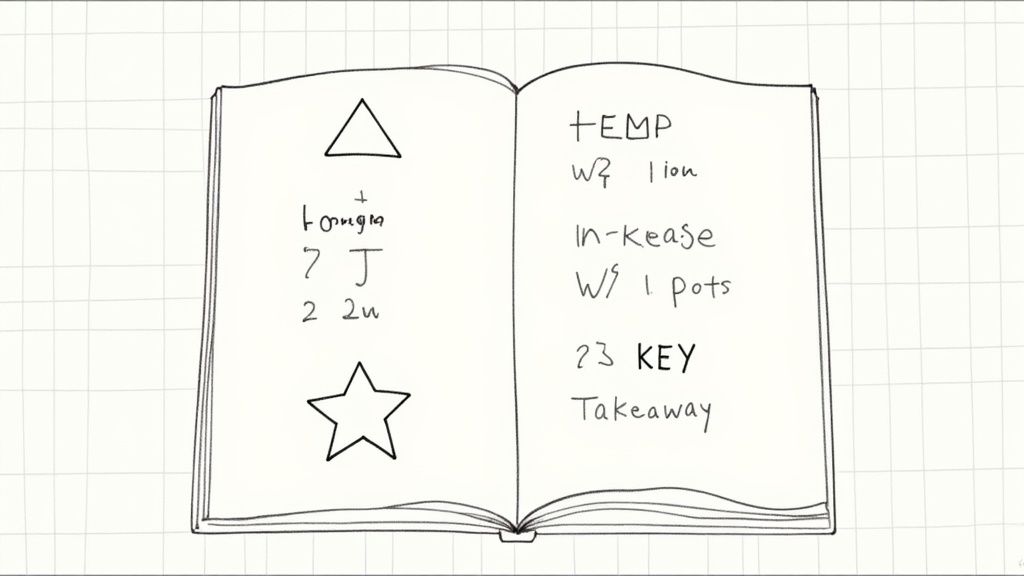 7 J
2 2u
tEMP
lion
In-kease
W/ 1 pots
23 KEY
Takeaway